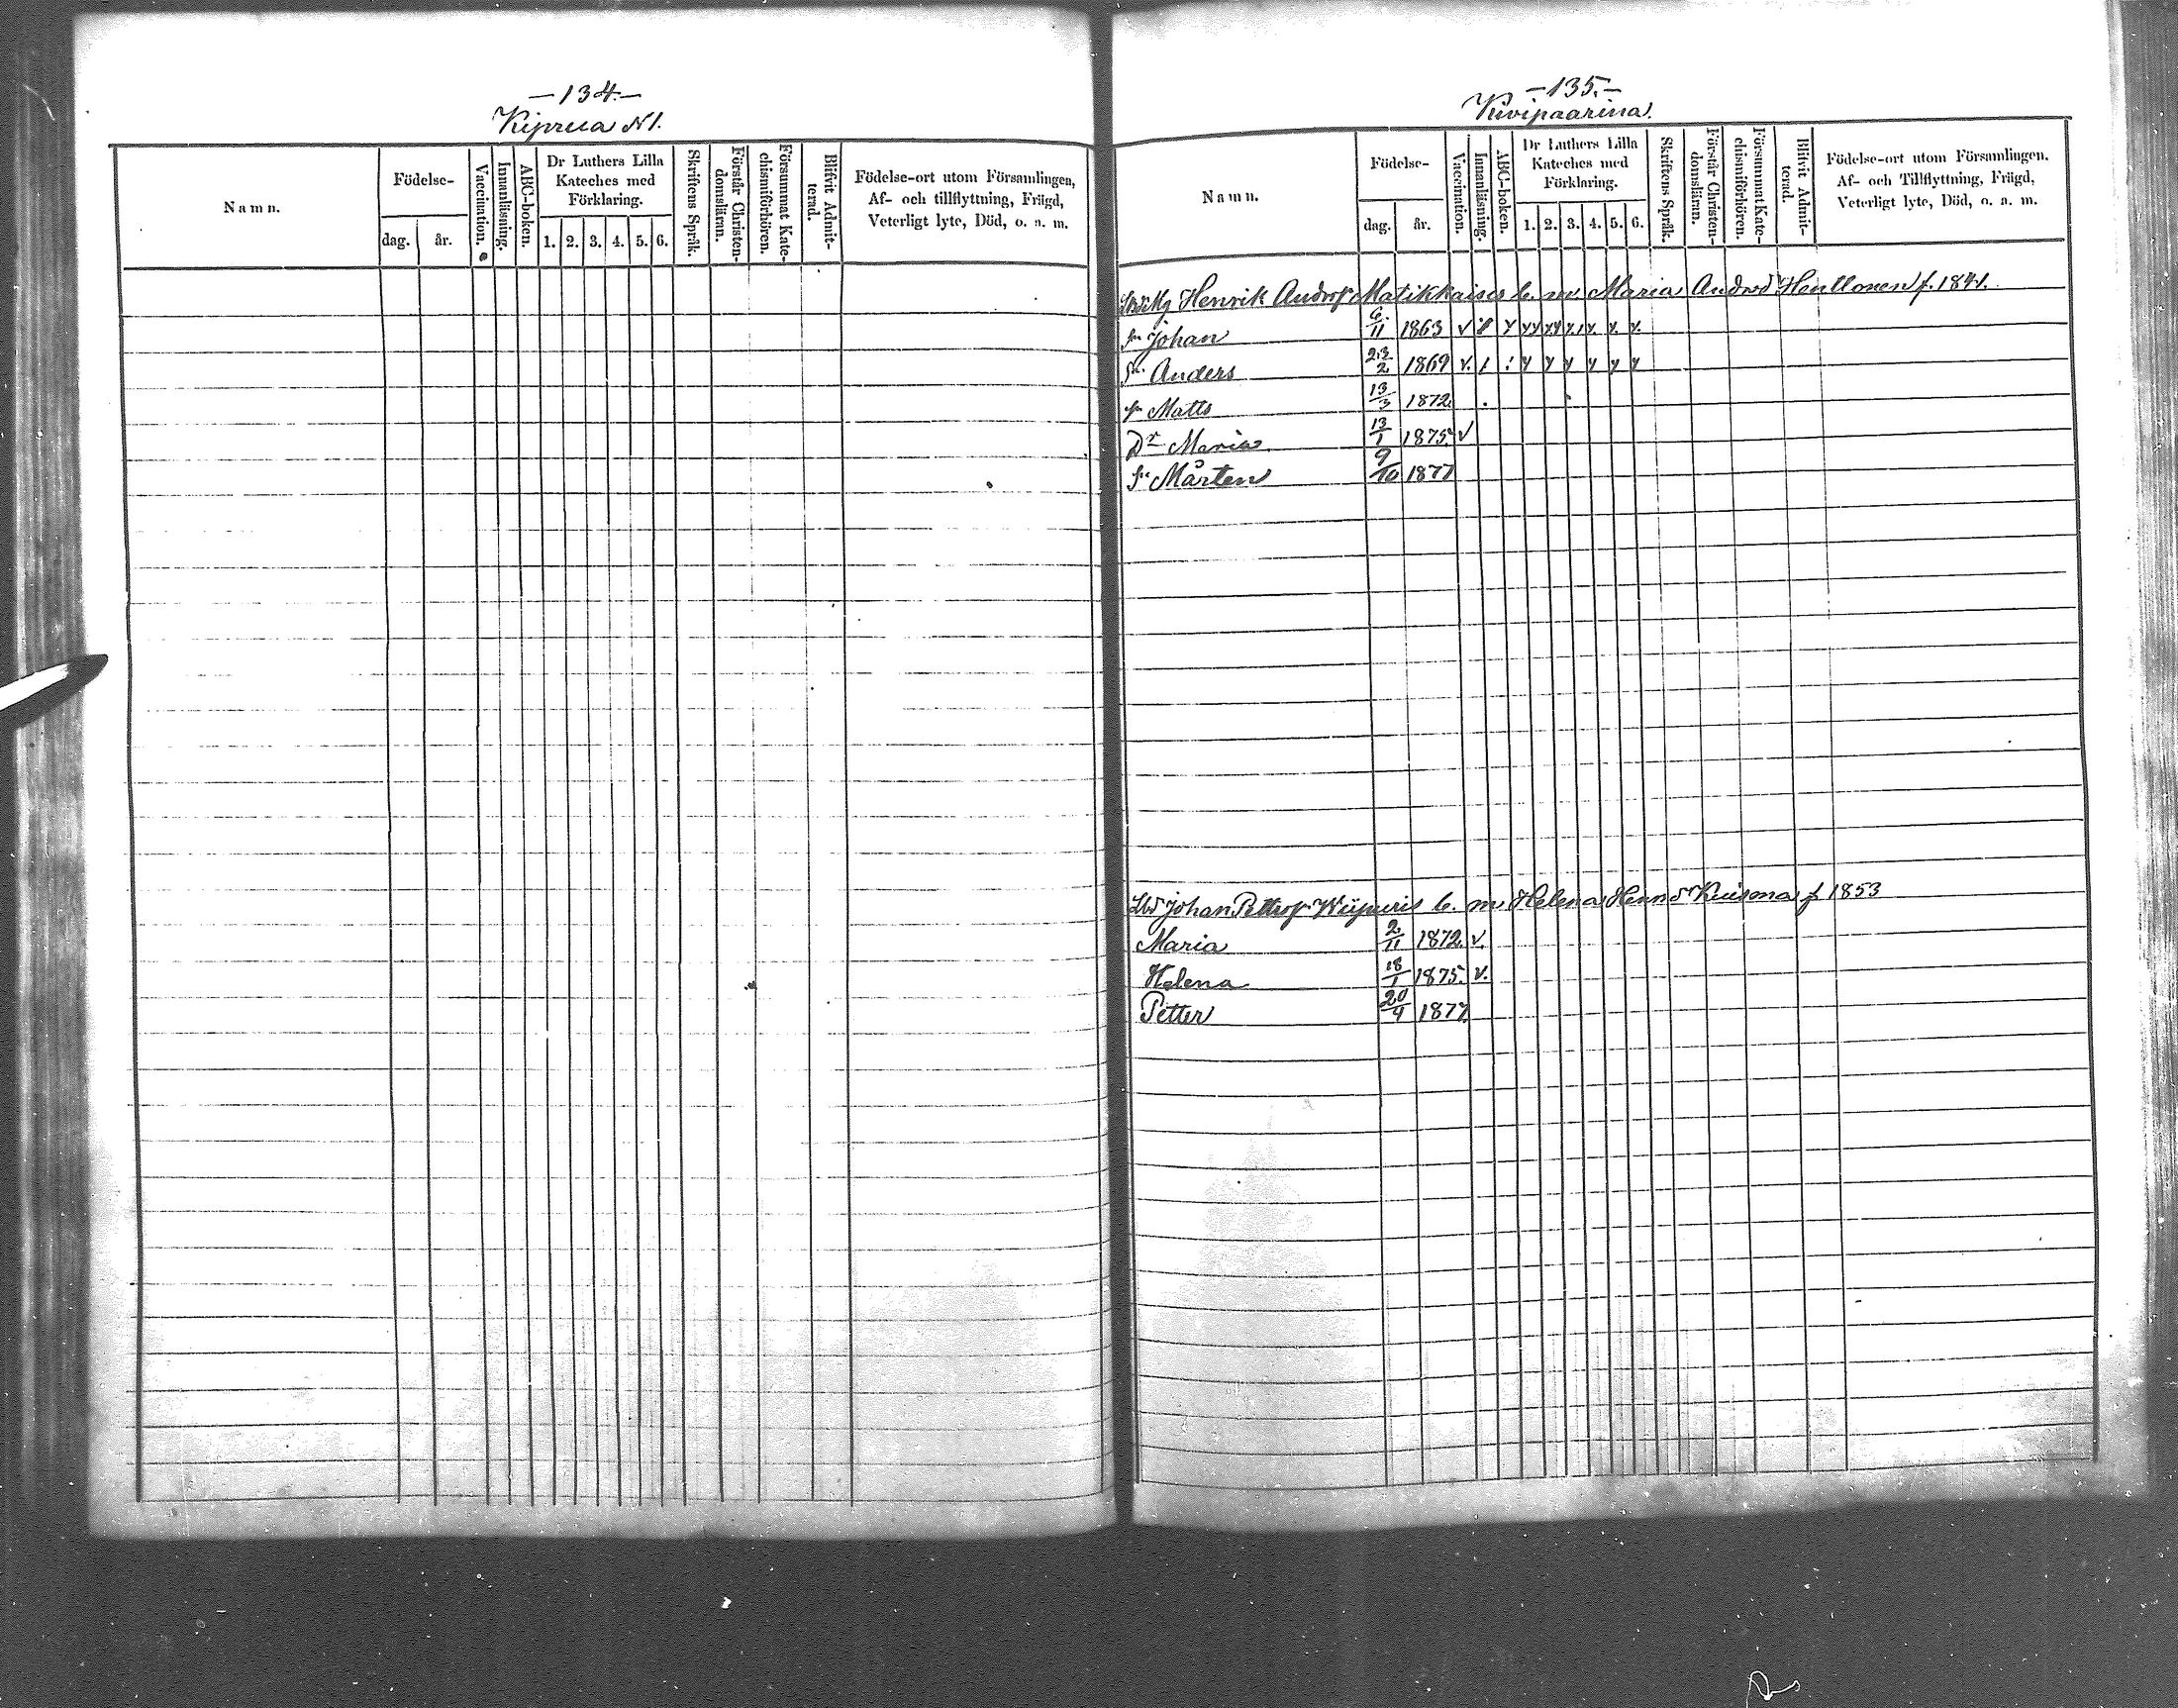 —134.—
Kiprua N1.
Namn.
Födelse-
dag. år.
Vaccination.
Innanläsning.
ABC-boken.
Dr Luthers Lilla
Kateches med
Förklaring.
1. 2. 3. 4. 5. 6.
Skriftens Språk.
Förstår Christen-
domsläran.
Försummat Kate-
chismiförhören.
Blifvit Admit-
terad.
Födelse-ort utom Församlingen,
Af- och tillflyttning, Frägd,
Veterligt lyte, Död, o. a. m.
—135.—
Kivipaarina.
Namn.
Födelse-
dag. år.
Vaccination.
Innanläsning.
ABC-boken.
Dr Luthers Lilla
Kateches med
Förklaring.
1. 2. 3. 4. 5. 6.
Skriftens Språk.
Förstår Christen-
domsläran.
Försummat Kate-
chismiförhören.
Blifvit Admit-
terad.
Födelse-ort utom Församlingen.
Af- och Tillflyttning, Frägd,
Veterligt lyte, Död, o. a. m.
Henrik Andrsf Matikkais G. m. Maria Andrsd Henttonen f. 1841.
Sn Johan 6/11 1863
Sn Anders 23/2 1869 v.
Sn Matts 13/3 1872
Dr Maria 13/1 1875 v
Sn Mårten 9/10 1877
Johan Pettrsf Wiipuris G. m. Helena Henrsdr Kuisma f 1853
Maria 2/11 1872. v.
Helena 18/1 1875. v.
Petter 20/9 1877.